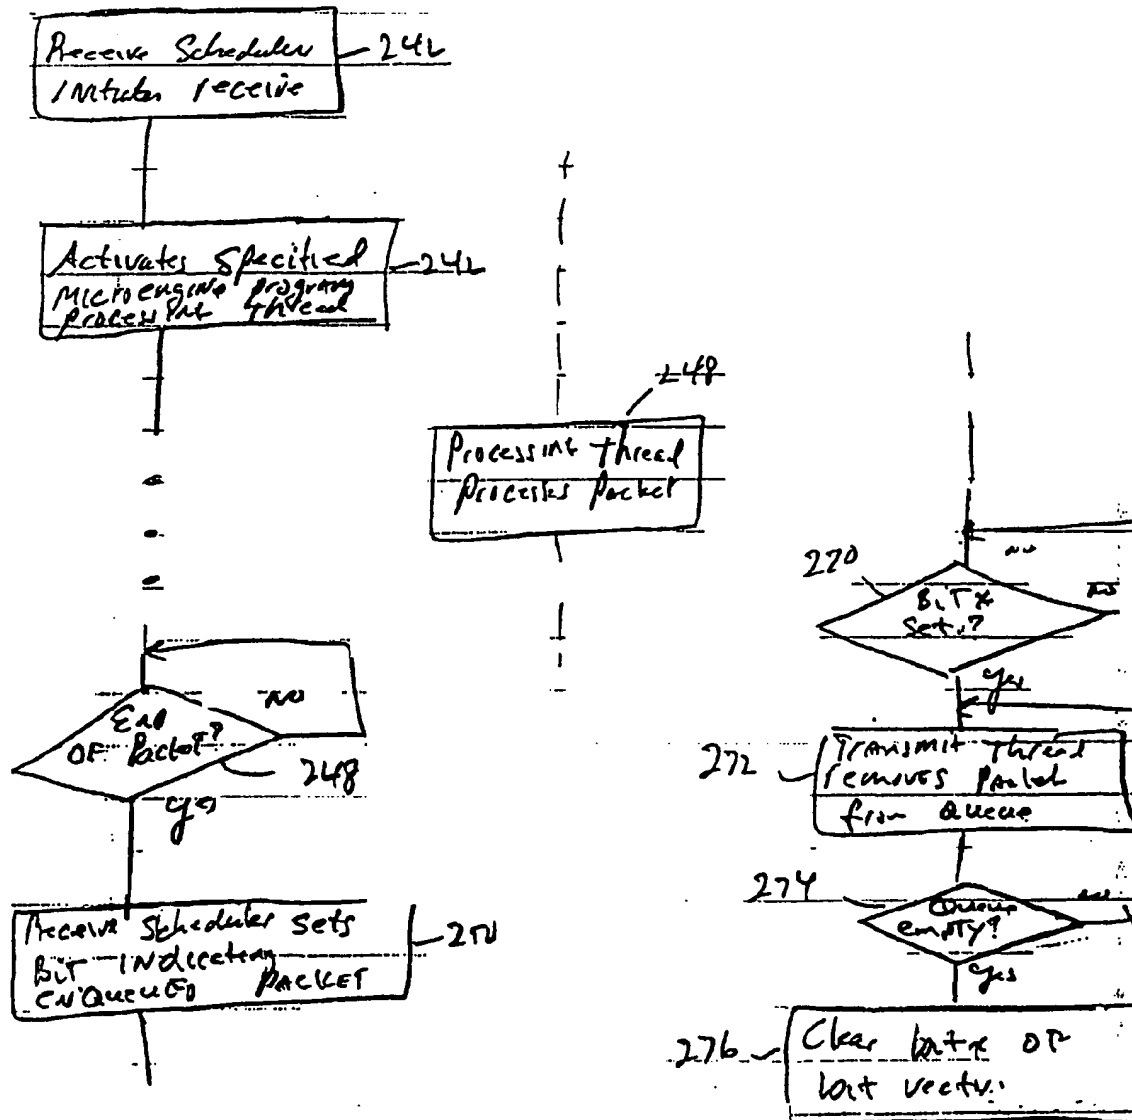 Receive Scheduler
Initiates receive
242
Activates Specified
Microengine program
processing thread
242
248
Processing thread
Processes packet
End
OF Packet?
NO
248
yes
Receive Scheduler sets
BIT INdicating
ENQUEUED PACKET
250
270
BiT x
Set.?
NO
NO
yes
272
TRANSMIT thread
removes packet
from Queue
274
Queue
empty?
NO
yes
276
Clear bit x OF
bit vector